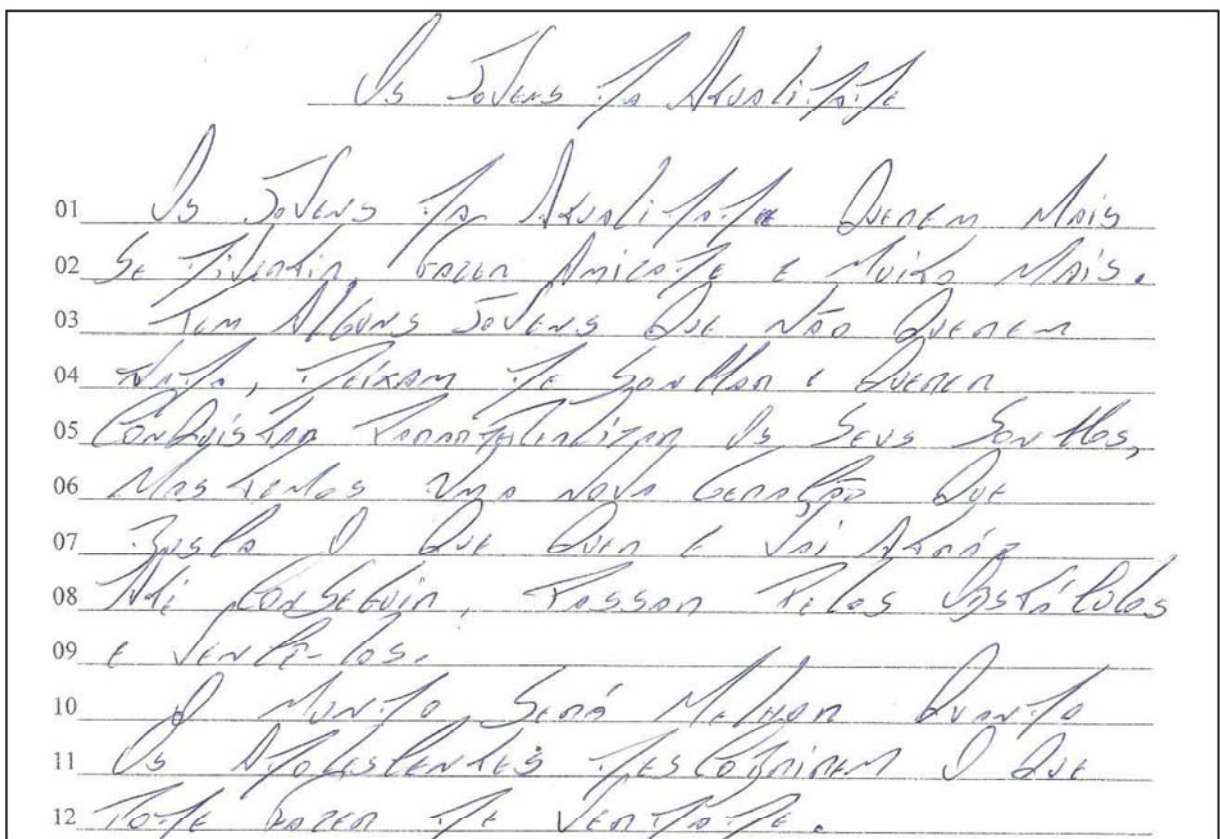 Os Jovens da Atualidade
01 Os Jovens da Atualidade Querem Mais
02 Se Divertir, Fazer Amizade e Muito Mais.
03 Tem Alguns Jovens Que Não Querem
04 Nada, Deixam de Sonhar e Querer
05 Conquistar Para Realizar Os Seus Sonhos,
06 Mas Temos Uma Nova Geração Que
07 Busca O Que Quer e Vai Atráz
08 Até Conseguir, Passar Pelos Obstáculos
09 e Vencê-los.
10 O Mundo Será Melhor Quando
11 Os Adolescentes Descobrirem O Que
12 Pode Fazer de Verdade.